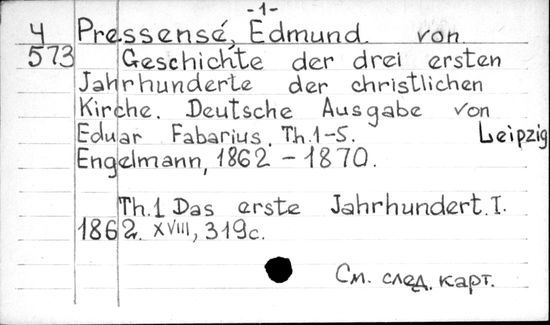 -1-
Ч Pressensé, Edmund von
573 Geschichte der drei ersten
Jahrhunderte der christlichen
Kirche. Deutsche Ausgabe von
Eduar Fabarius. Th.1-5. Leipzig
Engelmann, 1862 - 1870.
Th.1 Das erste Jahrhundert. I.
1862. XVIII, 319c.
См. след. карт.